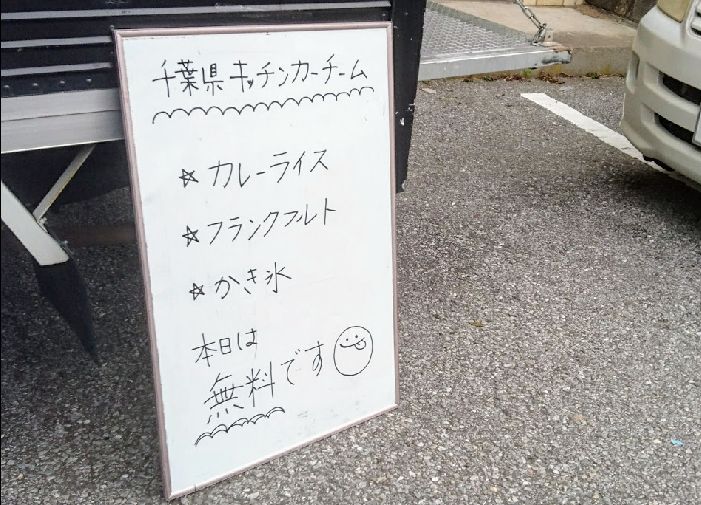 千葉県キッチンカーチーム
☆カレーライス
☆フランクフルト
☆かき氷
本日は
無料です